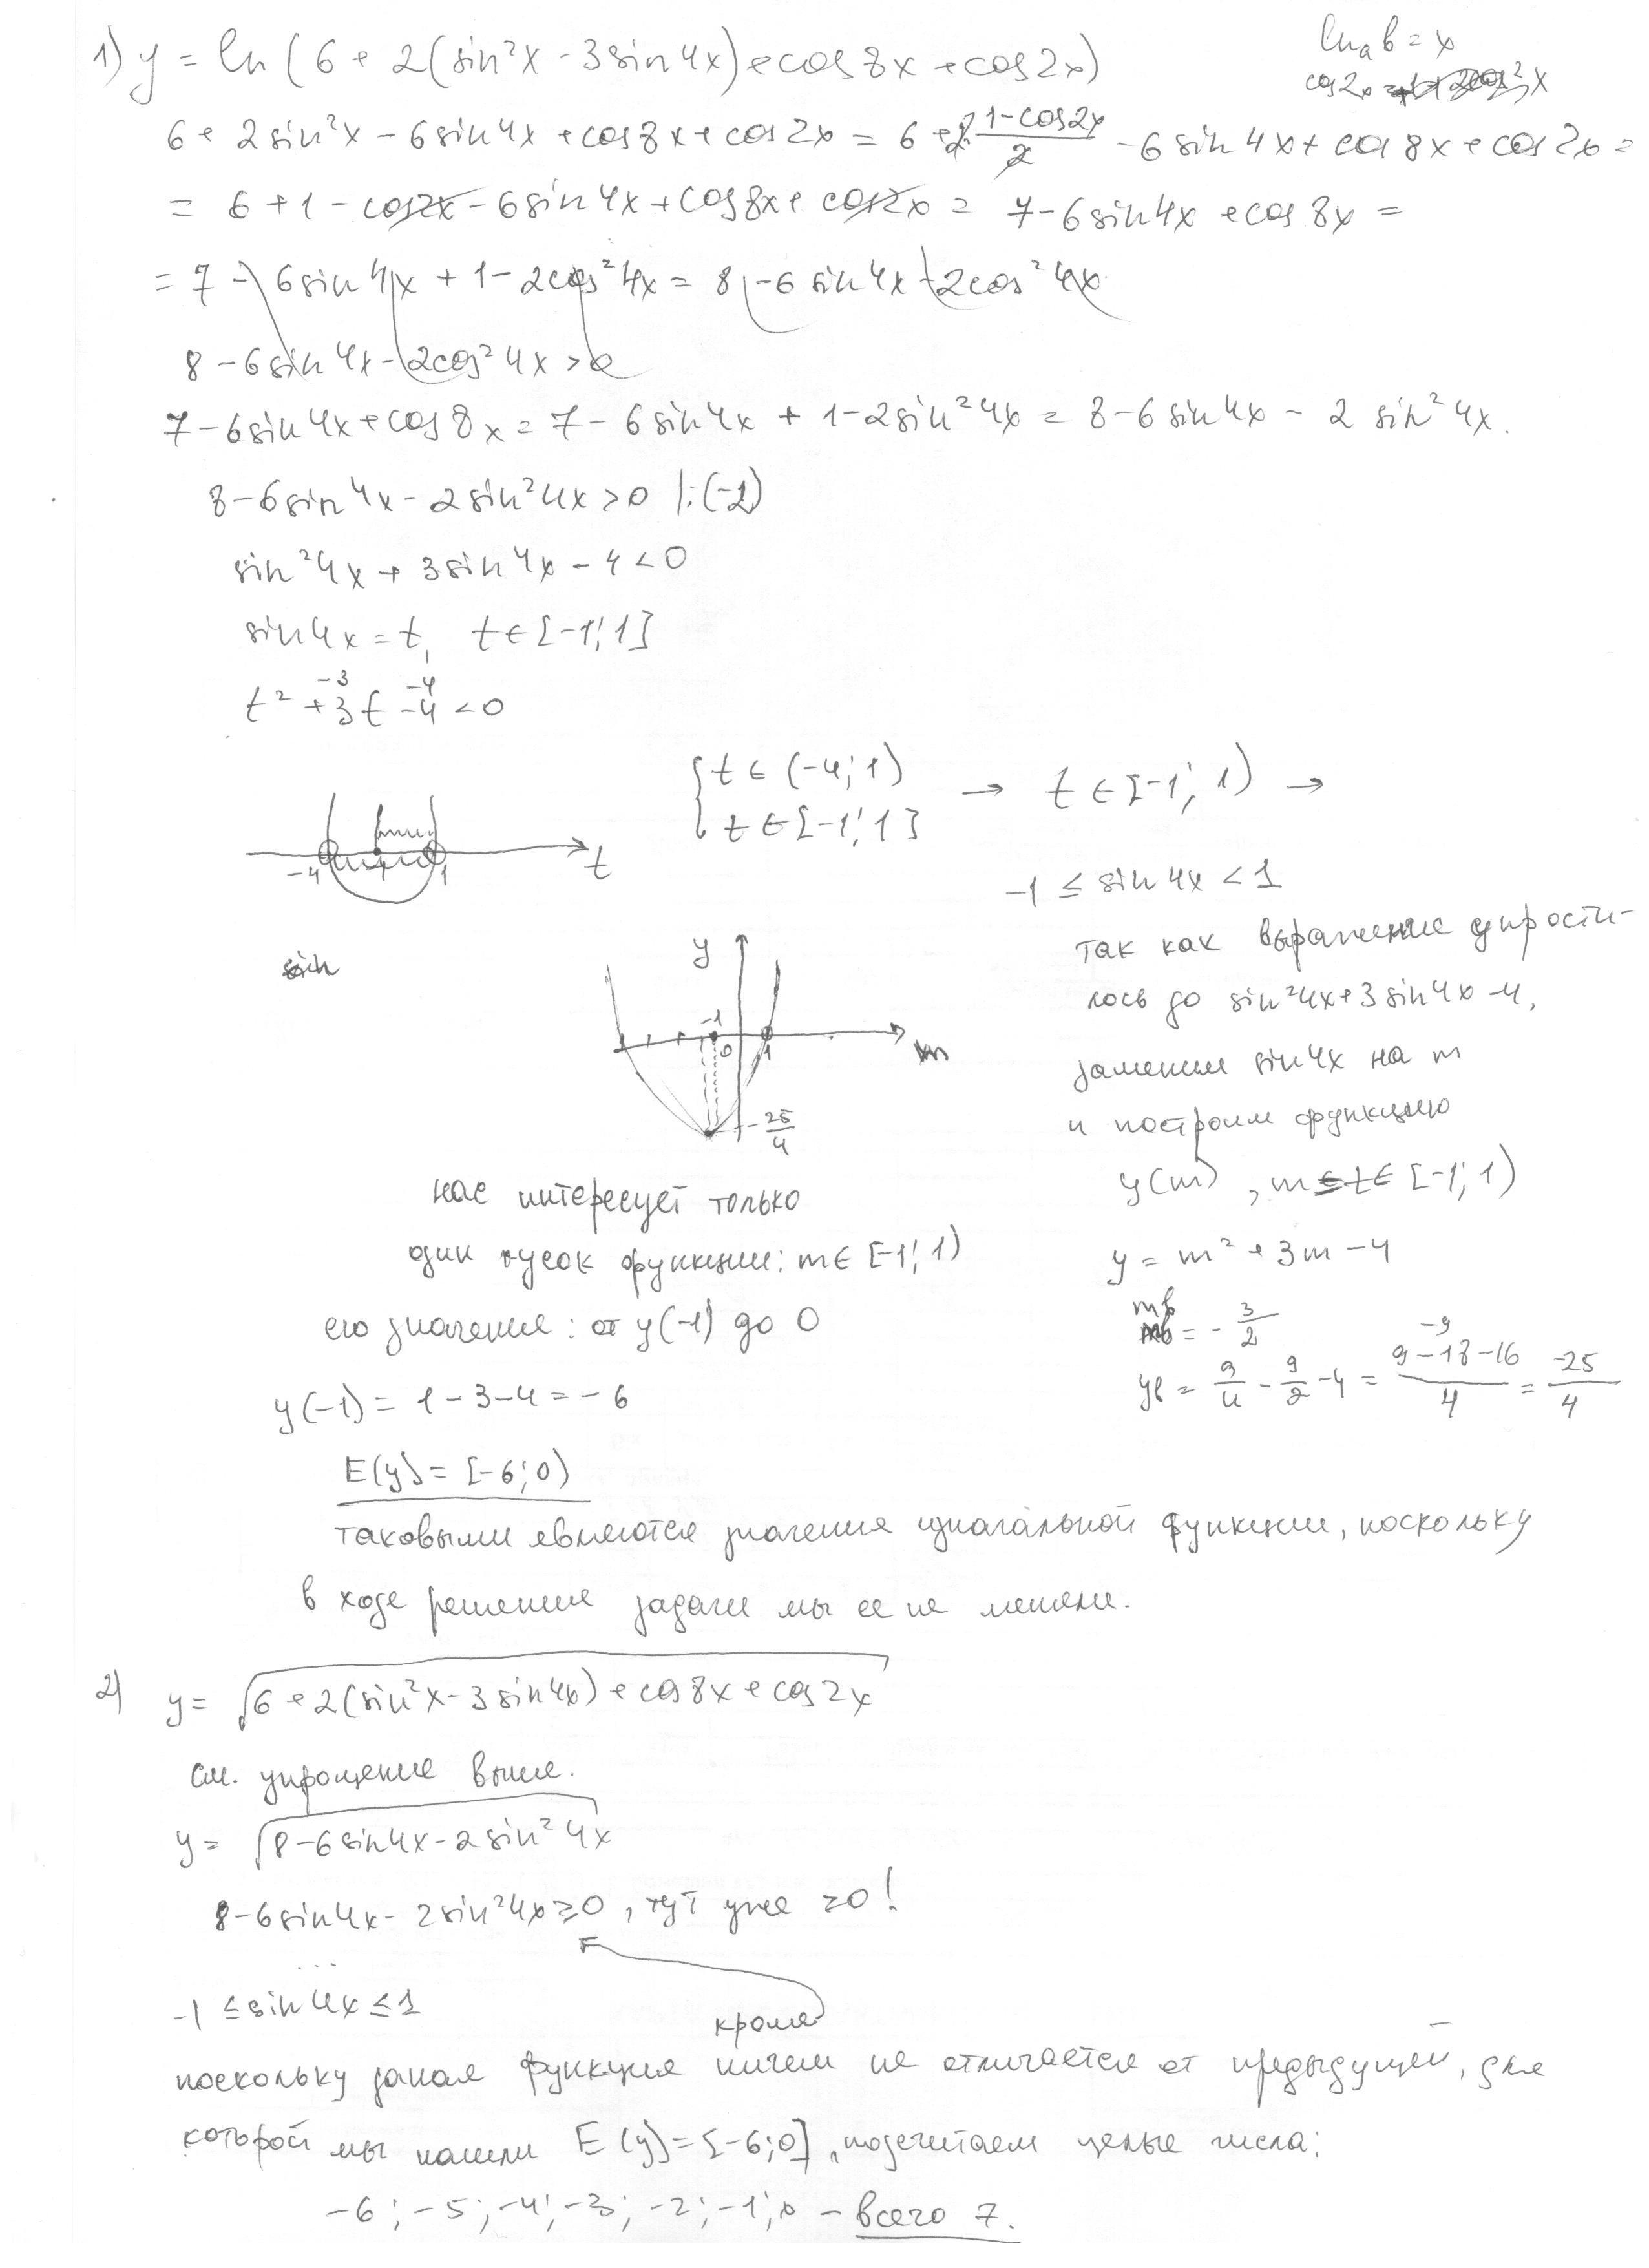 1) y = ln(6 + 2(sin²x - 3sin4x) + cos8x + cos2x)
lnₐb = x
cos2x =
6 + 2sin²x - 6sin4x + cos8x + cos2x = 6 + 2·(1-cos2x)/2 - 6sin4x + cos8x + cos2x =
= 6 + 1 - cos2x - 6sin4x + cos8x + cos2x = 7 - 6sin4x + cos8x =
= 7 - 6sin4x + 1 - 2cos²4x = 8 - 6sin4x - 2cos²4x
8 - 6sin4x - 2cos²4x > 0
7 - 6sin4x + cos8x = 7 - 6sin4x + 1 - 2sin²4x = 8 - 6sin4x - 2sin²4x.
8 - 6sin4x - 2sin²4x > 0 |:(-2)
sin²4x + 3sin4x - 4 < 0
sin4x = t, t ∈ [-1; 1]
-3 -4
t² + 3t - 4 < 0
{ t ∈ (-4; 1)
t ∈ [-1; 1] → t ∈ [-1; 1) →
-4 1 t
-1 ≤ sin4x < 1
так как выражение упрости-
лось до sin²4x + 3sin4x - 4,
заменим sin4x на m
и построим функцию
y(m), m ∈ [-1; 1)
y = m² + 3m - 4
mв
mв = -3/2
-9
yв = 9/4 - 9/2 - 4 = (9-18-16)/4 = -25/4
sin
y
-1 0 1 m
-25/4
нас интересует только
один кусок функции: m ∈ [-1; 1)
его значения: от y(-1) до 0
y(-1) = 1 - 3 - 4 = -6
E(y) = [-6; 0)
таковыми являются значения изначальной функции, поскольку
в ходе решения задачи мы ее не меняли.
2) y = √(6 + 2(sin²x - 3sin4x) + cos8x + cos2x)
см. упрощение выше.
y = √(8 - 6sin4x - 2sin²4x)
8 - 6sin4x - 2sin²4x ≥ 0, тут уже ≥0!
...
-1 ≤ sin4x ≤ 1
кроме
поскольку даная функция ничем не отличается от предыдущей, для
которой мы нашли E(y) = [-6; 0], подсчитаем целые числа:
-6; -5; -4; -3; -2; -1; 0 - всего 7.